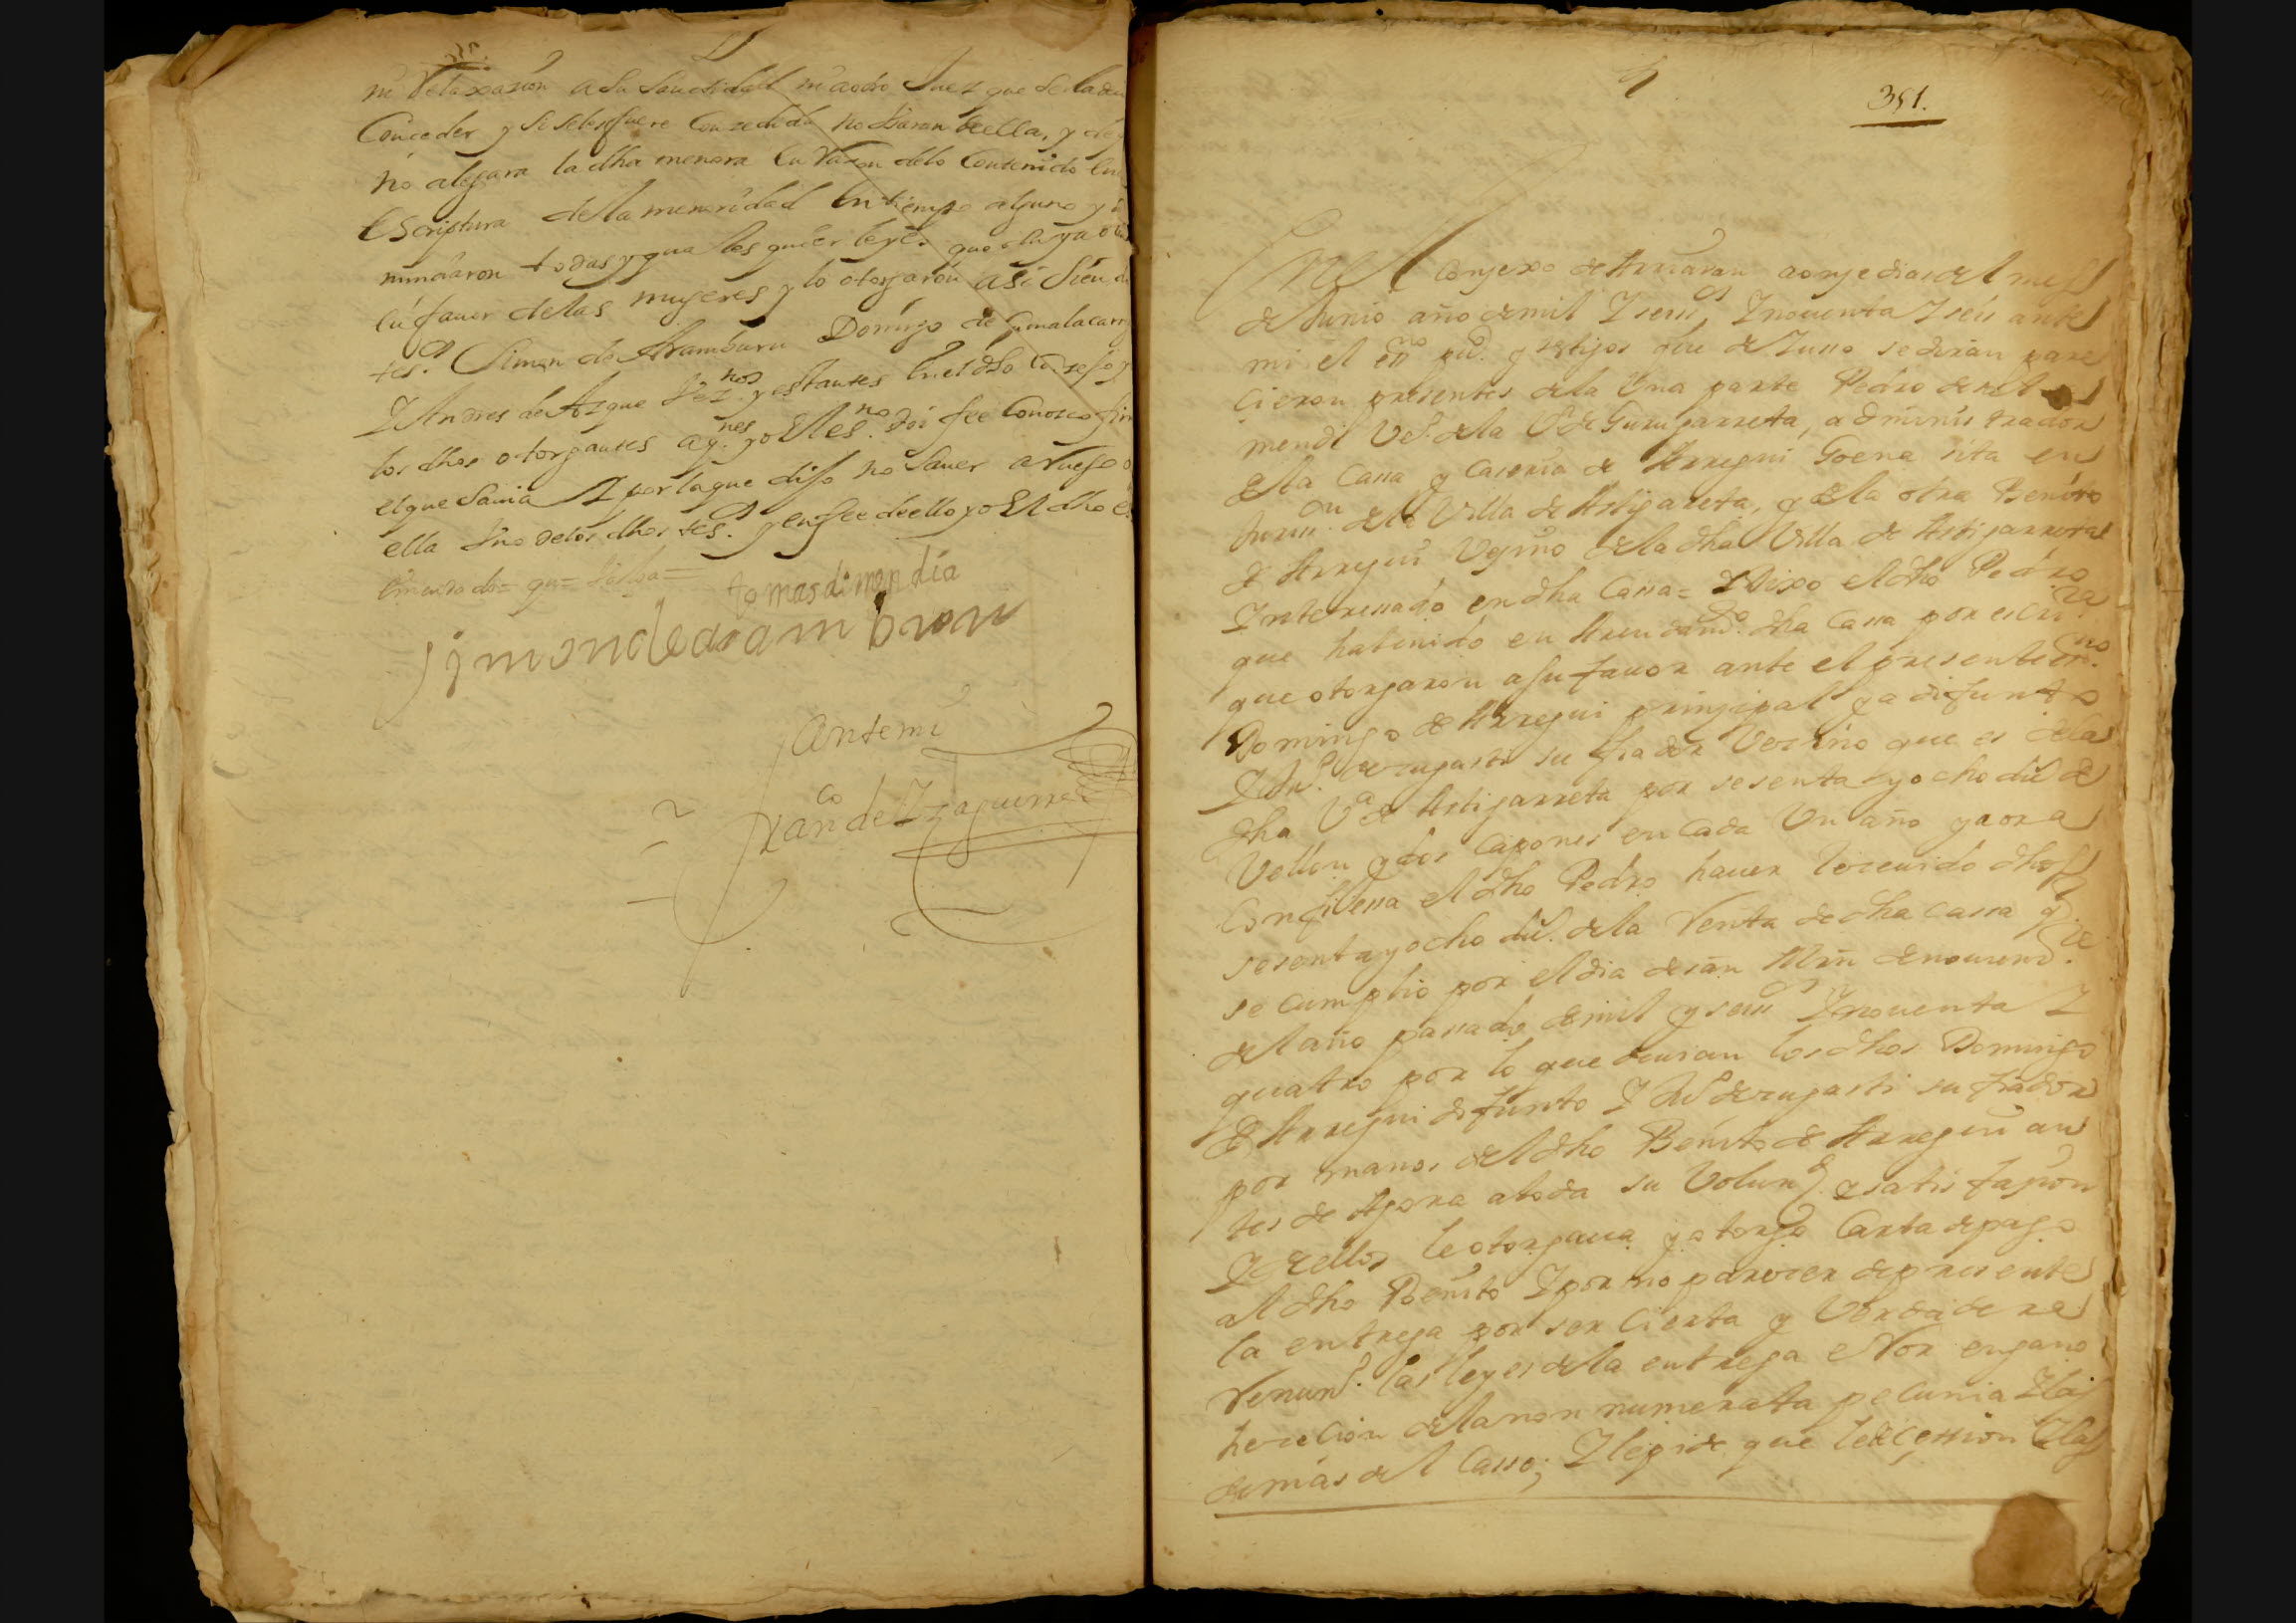 ni relaxazion a su Santidad ni a otro Juez que se la deua
Conceder y si seles fuere Conzedida no Vsaran de ella, y
no alegara la dha menora en razon delo Contenido en
escriptura de la menoridad en tiempo alguno y
nunciaron todas y qualesquier leyes que
en fauor delas mugeres y lo otorgaron asi Siendo
tesos. Simon de Aramburu Domingo de Amalacarr
Y Andres de Azque Vez.nos y estantes en el dho Conzejo y
los dhos otorgantes a q.nes yo El es.no doi fee Conozco firm
el que Sauia Y por la que dijo no Sauer a ruego
ella Vno delos dhos tes.os y en fee de ello yo El dho
tomas di mendia
simon de aramburu
Ante mi
Fran.co de Yzaguirre
351.
En el Conzexo de Arriaran a onze dias del mes
de Junio año de mil Y seis.os Y nouenta Y seis ante
mi el es.no pu.co y testigos que de Yusso se diran pare
cieron presentes dela Vna parte Pedro de
mendi Vez.o dela V.a de Gurugarreta, administrador
dela Cassa y Caseria de Arregui Goena sita en
Juris.on dela Villa de Astigarreta, y dela otra Benito
de Arregui Vezino dela dha Villa de Astigarreta
Ynteressado en dha Cassa = Y Dixo el dho Pedro
que ha tenido en Arrendam.to dha Cassa por escri.ra
que otorgaron a su fauor ante el presente es.no
Domingo de Arregui prinzipal ya difunto
Y Ju.o de zugasti su fiador Vezino que es dela
dha V.a de Astigarreta por sesenta y ocho du.s de
Vellon y dos Capones en Cada Vn año y aora
Confiessa el dho Pedro hauer Rezeuido dhos
sesenta y ocho du.s dela Renta de dha Cassa q.
se cumplio por el dia de san Mrn de nouiem.re
del año passado de mil y seis.os Y nouenta Y
quatro por lo que deuian los dhos Domingo
de Arregui difunto Y Ju.o de zugasti su fiador
por manos del dho Benito de Arregui an
tes de Agora a toda su Volun.d y satisfazion
Y de ellos le otorgaua y otorgo Carta de pago
al dho Benito Y por no parecer de presente
la entrega por ser Cierta y Verdadera
Renun.o las leyes dela entrega error engano
hexecion dela non numerata pecunia Y las
demas del Casso; Y le pide que le de Cession de las